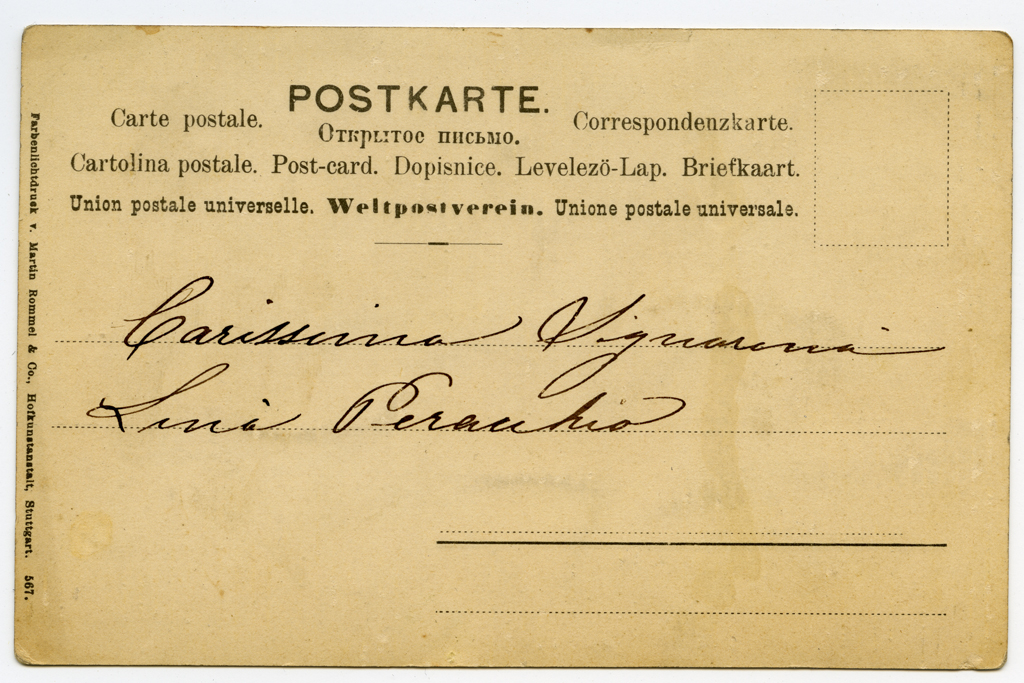 POSTKARTE.
Carte postale. Открытое письмо. Correspondenzkarte.
Cartolina postale. Post-card. Dopisnice. Levelezö-Lap. Briefkaart.
Union postale universelle. Weltpostverein. Unione postale universale.
Carissima Signorina
Lina
Farbenlichtdruck v. Martin Rommel & Co., Hofkunstanstalt, Stuttgart. 567.